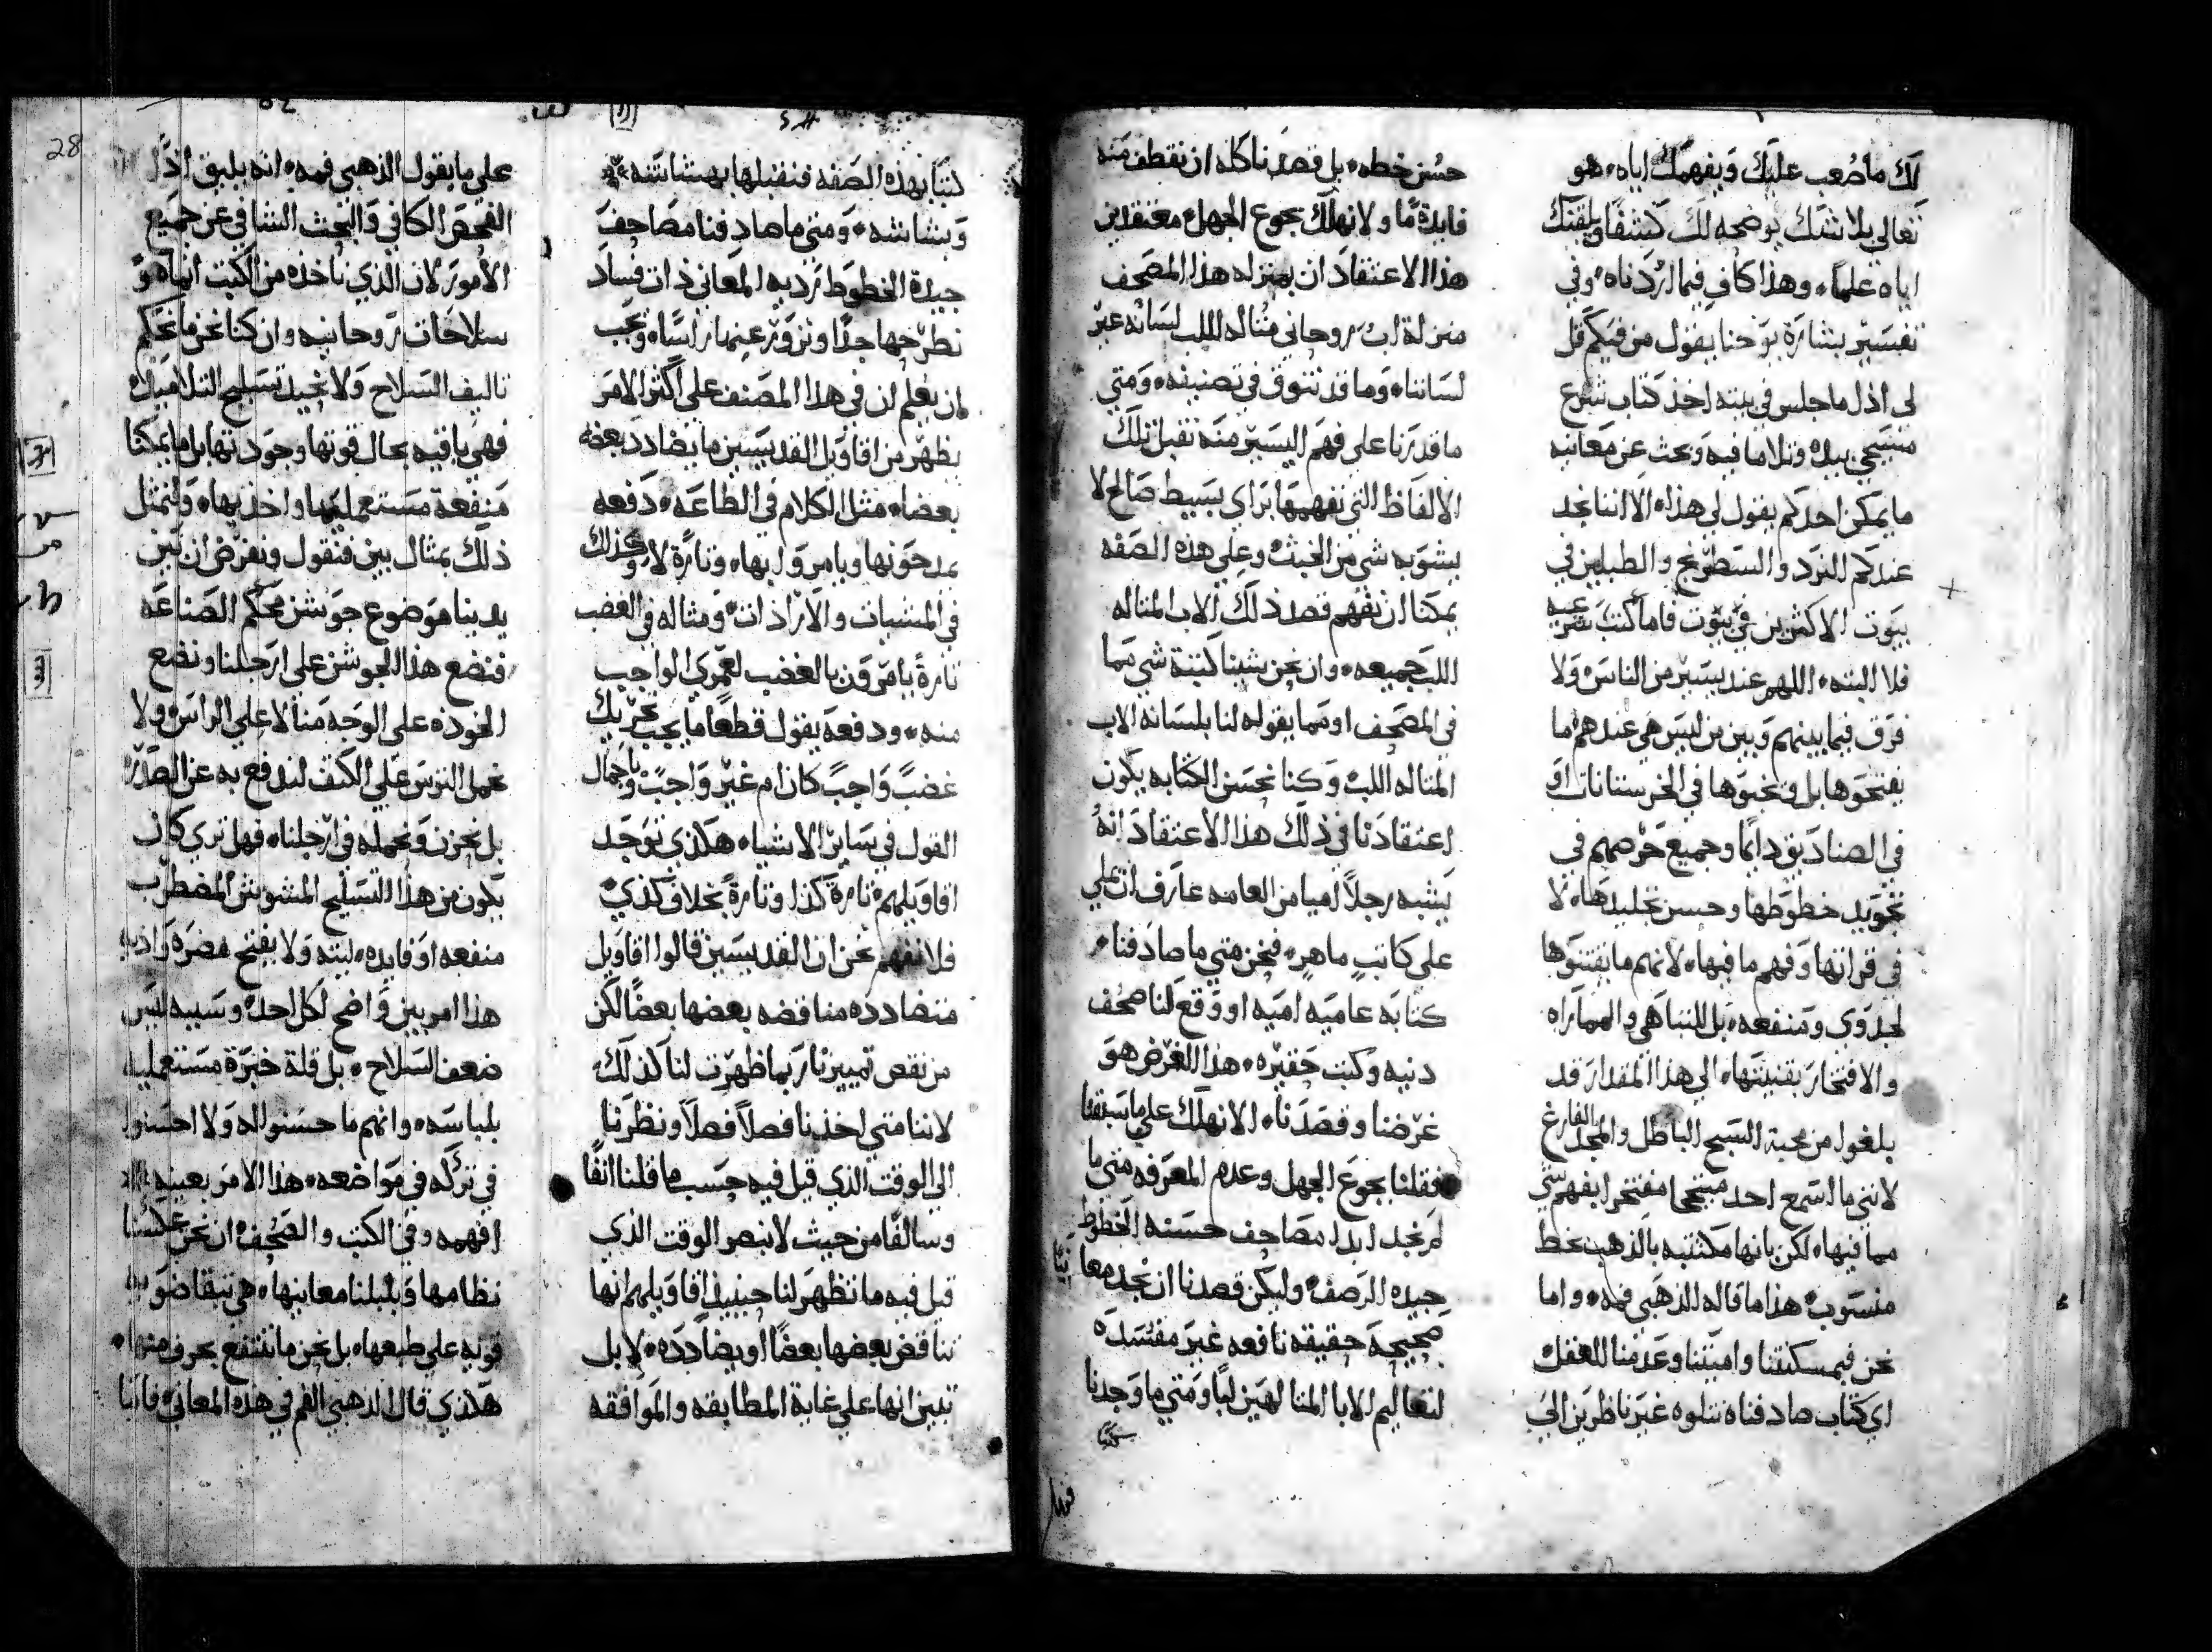 لك ما صعب عليك ويفهمك اياه هو
تعالى بلا شك يوضحه لك كشفًا ويلقنك
اياه علمًا وهذا كاف فيما اردناه وفي
تفسير بشارة يوحنا يقول من فيكم قل
لى اذل ما جلس في بيته اخذ كتاب شرع
مسيحي بيده وتلا ما فيه وبحث عن معانيه
ما يمكن احدكم يقول لي هذا الا اننا نجد
عندكم النرد والسطرنج والطبلين في
بيوت الاكثرين في بيوت فاما كتب
فلا البته اللهم عند يسير من الناس ولا
فرق فيما بينهم وبين من ليس هي عندهم ما
يفتحوها بل يخبوها في الخرستانات او
في الصناديق دايمًا وجميع حرصهم في
تجويد خطوطها وحسن تجليدها لا
في قراتها وفهم ما فيها لانهم ما يقتنوها
لجدوى ومنفعه بل للتباهي والمماراه
والافتخار بقنيتها الي هذا المقدار قد
بلغوا من محبة السبح الباطل والمجد الفارغ
لانني ما اسمع احد مبتهجا مفتخرا بفهم شي
مما فيها لكن بانها مكتتبه بالذهب بخط
منسوب هذا ما قاله الذهبي فمه واما
نحن فبمسكنتنا واميتنا وعدمنا للعقل
اي كتاب صادفناه نتلوه غير ناظرين الي
حسن خطه بل قصدنا كله ان نقطف منه
فايدة ما ولا نهلك بجوع الجهل معتقدين
هذا الاعتقاد ان بمنزله هذا المصحف
منزلة اب روحاني متاله اللب لسانه غير
لساننا وما قد نتوق في تصنيفه ومتي
ما قدرنا على فهم اليسير منه نقبل تلك
الالفاظ التي نفهمها براي بسيط صالح لا
يشوبه شي من الخبث وعلي هذه الصفه
يمكنا ان نفهم قصد ذلك الاب المتاله
اللب جميعه وان نحن شينا كتبة شي مما
في المصحف او مما يقوله لنا بلسانه الاب
المتاله اللب وكنا نحسن الكتابه يكون
اعتقادنا في ذلك هذا الاعتقاد انه
يشبه رجلاً اميا من العامه عارف ان يملي
على كاتب ماهر فنحن متي ما صادفنا
كتابه عاميه اميه او وقع لنا صحف
دنيه وكتب حقيره هذا الغرض هو
غرضنا وقصدنا الا نهلك علي ما سبقنا
فقلنا بجوع الجهل وعدم المعرفه متي ما
لم نجد ابدا مصاحف حسنه الخطوط
جيده الرصف وليكن قصدنا ان نجد معانيًا
صحيحه حقيقه نافعه غير مفسده
لتعاليم الابا المتالهين لبًا ومتي ما وجدنا
كتبًا
كتبًا بهذه الصفه فنقبلها بهشاشته
وبشاشه ومتي ما صادفنا مصاحف
جيدة الخطوط رديه المعاني ذات فساد
نطرحها جدًا ونزور عنها راسًا ويجب
ان يعلم ان في هذا المصنف على اكثر الامر
يظهر من اقاويل القديسين ما يضادد بعضه
بعضا مثل الكلام في الطاعه دفعه
يمدحونها ويامروا بها وتارة لا وكذلك
في المشيات والارادات ومثاله في الغضب
تارةً يامرون بالغضب لعمري الواجب
منه ودفعه يقول قطعًا ما يجب تحريك
غضبً واجبً كان ام غير واجبً وباجمال
القول في ساير الاشياء هكذي توجد
اقاويلهم تارة كذا وتارةً بخلاف كذي
فلا نفهم نحن ان القديسين قالوا اقاويل
متضادده مناقضه بعضها بعضًا لكن
من نقص تمييزنا ربما ظهرت لنا كذلك
لاننا متي اخذنا فصلاً فصلاً ونظرنا
الى الوقت الذي قيل فيه حسب ما قلنا انفًا
وسالفًا من حيث لا نبصر الوقت الذي
قيل فيه ما تظهر لنا حينيذ اقاويلهم انها
تناقض بعضها بعضًا او يضادده لا بل
تبين انها علي غاية المطابقه والموافقه
علي ما يقول الذهبي فمه انه يليق اذًا
الفحص الكافي والبحث الشافي عن جميع
الامور لان الذي ناخذه من الكتب انماه و
سلاحات روحانيه وان كنا نحن ما نحكم
تاليف السلاح ولا نجيد تسليح التلاميذ
فهي باقيه بحال قوتها وجودتها بل ما يمكنا
منفعة مستعمليها واخذيها ولنمثل
ذلك بمثال بين فنقول ونفرض ان بين
يدينا موضوع جوشن محكم الصناعه
فنضع هذا الجوشن على ارجلنا ونضع
الخوذه على الوجه منا لا علي الراس ولا
نحمل الترس علي الكتف لندفع به عن الصدر
بل نحزن ونحمله في ارجلنا فهل تري كان
يكون من هذا التسليح المشوش المضطرب
منفعه او فايده البته ولا يفتح مضره واذيه
هذا امر بين واضح لكل احد وسببه ليس
ضعف السلاح بل قلة خبرة مستعمليه
بلباسه وانهم ما حسنوا له ولا احسنوا
في تركه في مواضعه هذا الامر بعينه
افهمه وفي الكتب والصحف ان نحن عكسنا
نظامها وبلبلنا معانيها هي تبقا ضو
قوته علي طبعها بل نحن ما ننتفع بحرف منها
هكذي قال الذهبي الفم في هذه المعاني فاننا
28